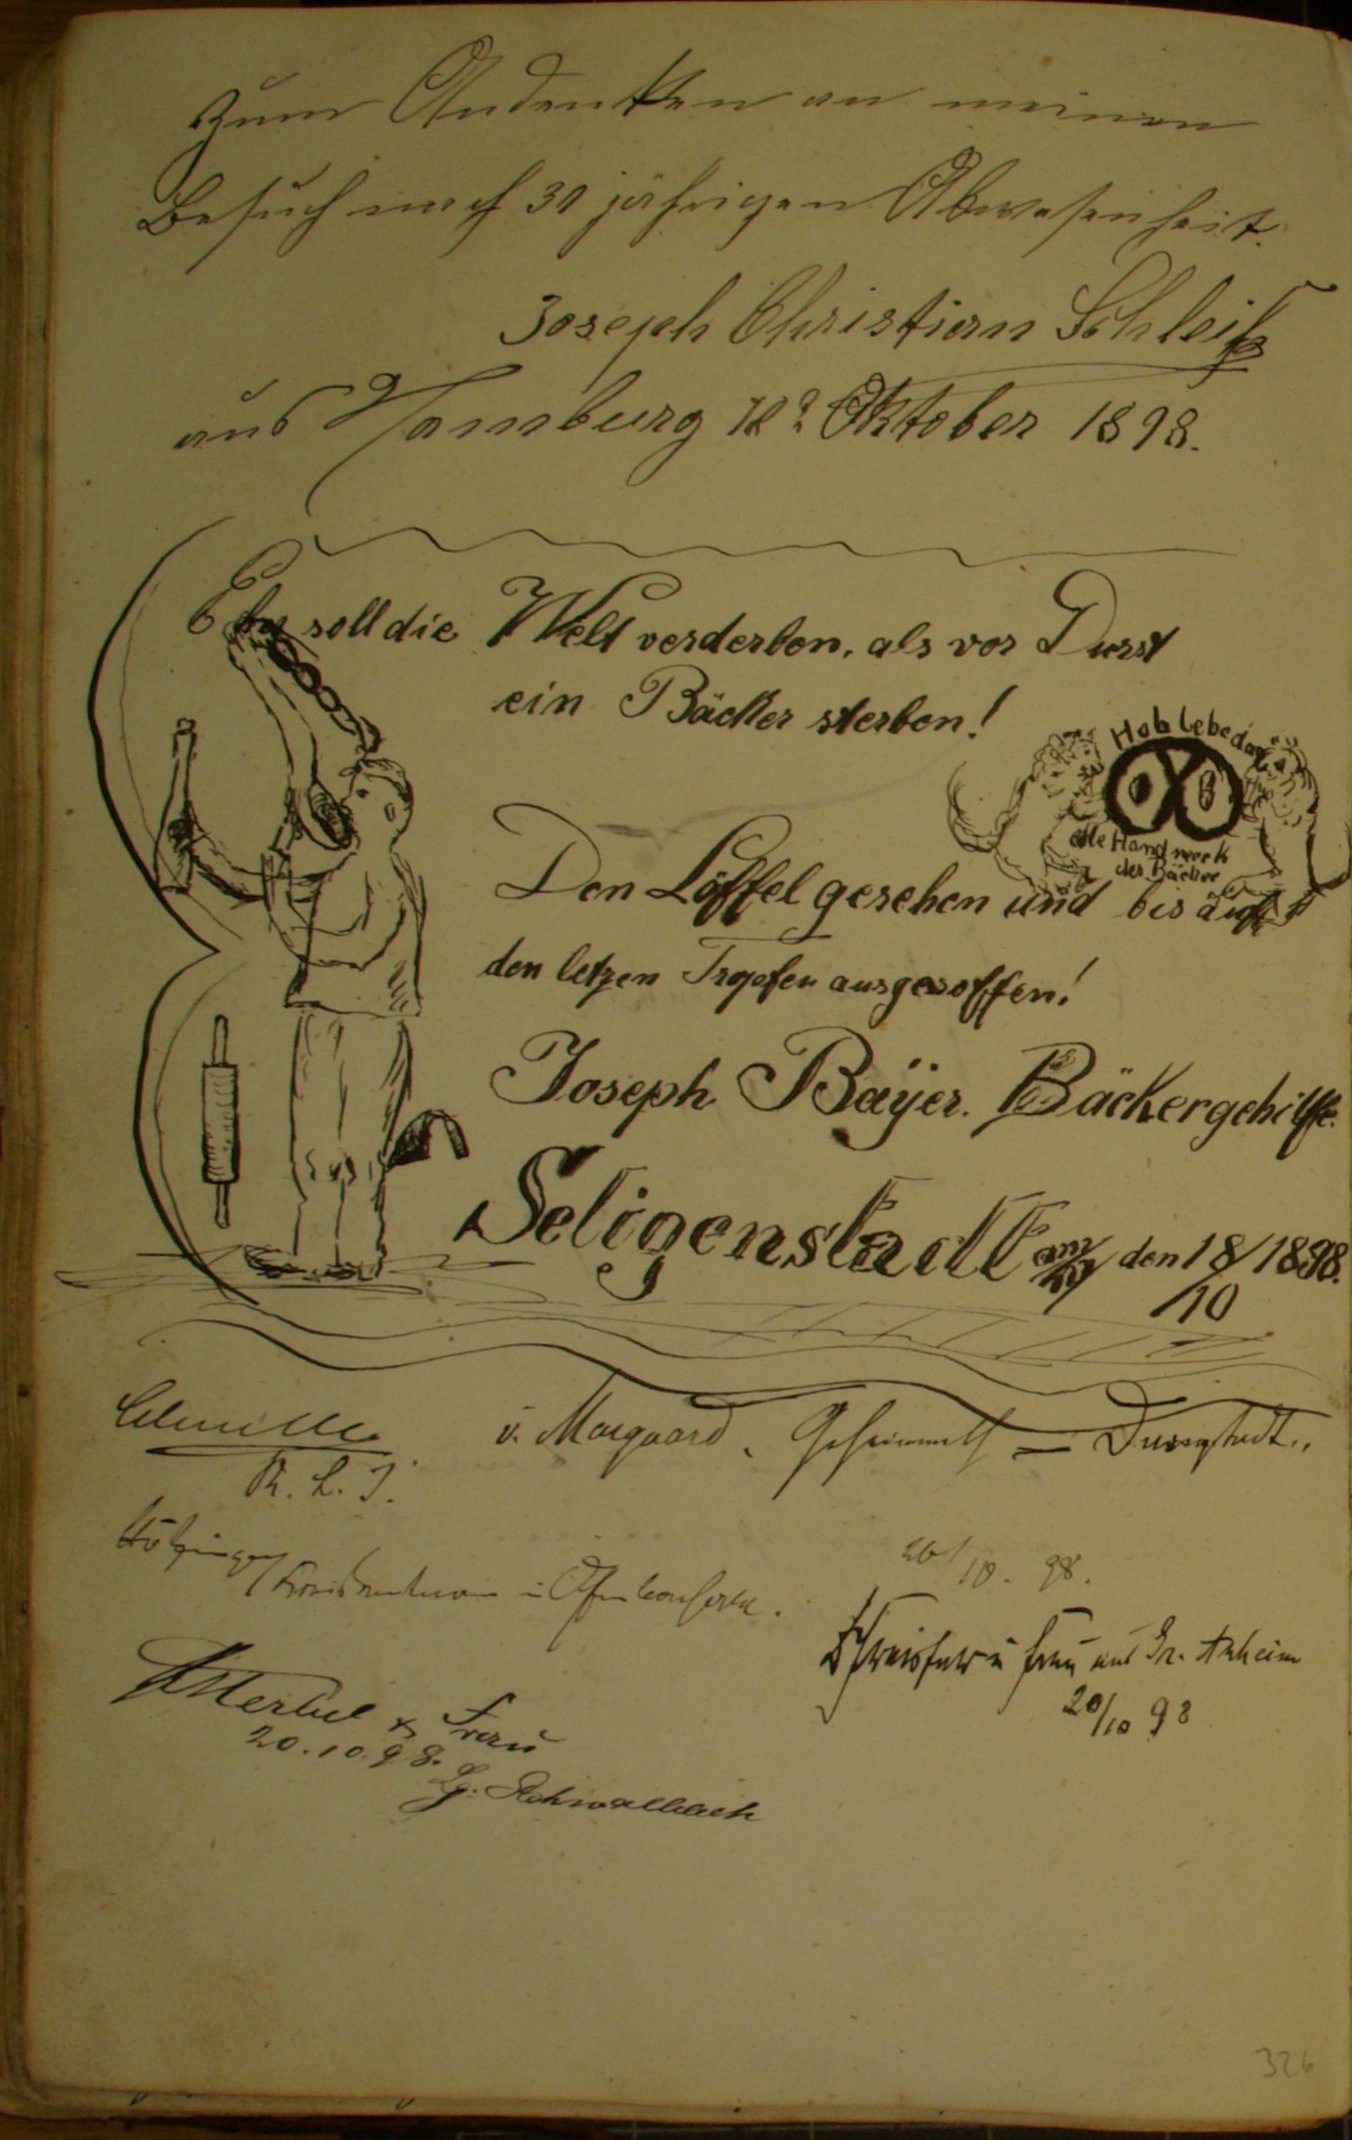 Zum Andenken an meinen
Besuch nach 30 jährigen Abwesenheit.
Joseph Christian Schleiß
aus Hamburg 18? Oktober 1898.
Eh soll die Welt verderben, als vor Durst
ein Bäcker sterben!
Hoh lebe das
alte Handwerk
der Bäcker
Den Löffel gesehen und bis auf
den letzen Tropfen ausgesoffen!
Joseph Bayer. Bäckergehilfe.
Seligenstadt den 18/10 1898.
v. Marquard, Geheimrath = Darmstadt.
K. L. I.
26/10. 98.
u Frau aus Gr. Auheim
20/10 98
Merkel & Frau
20.10.98.
Lg. Schwalbach
326